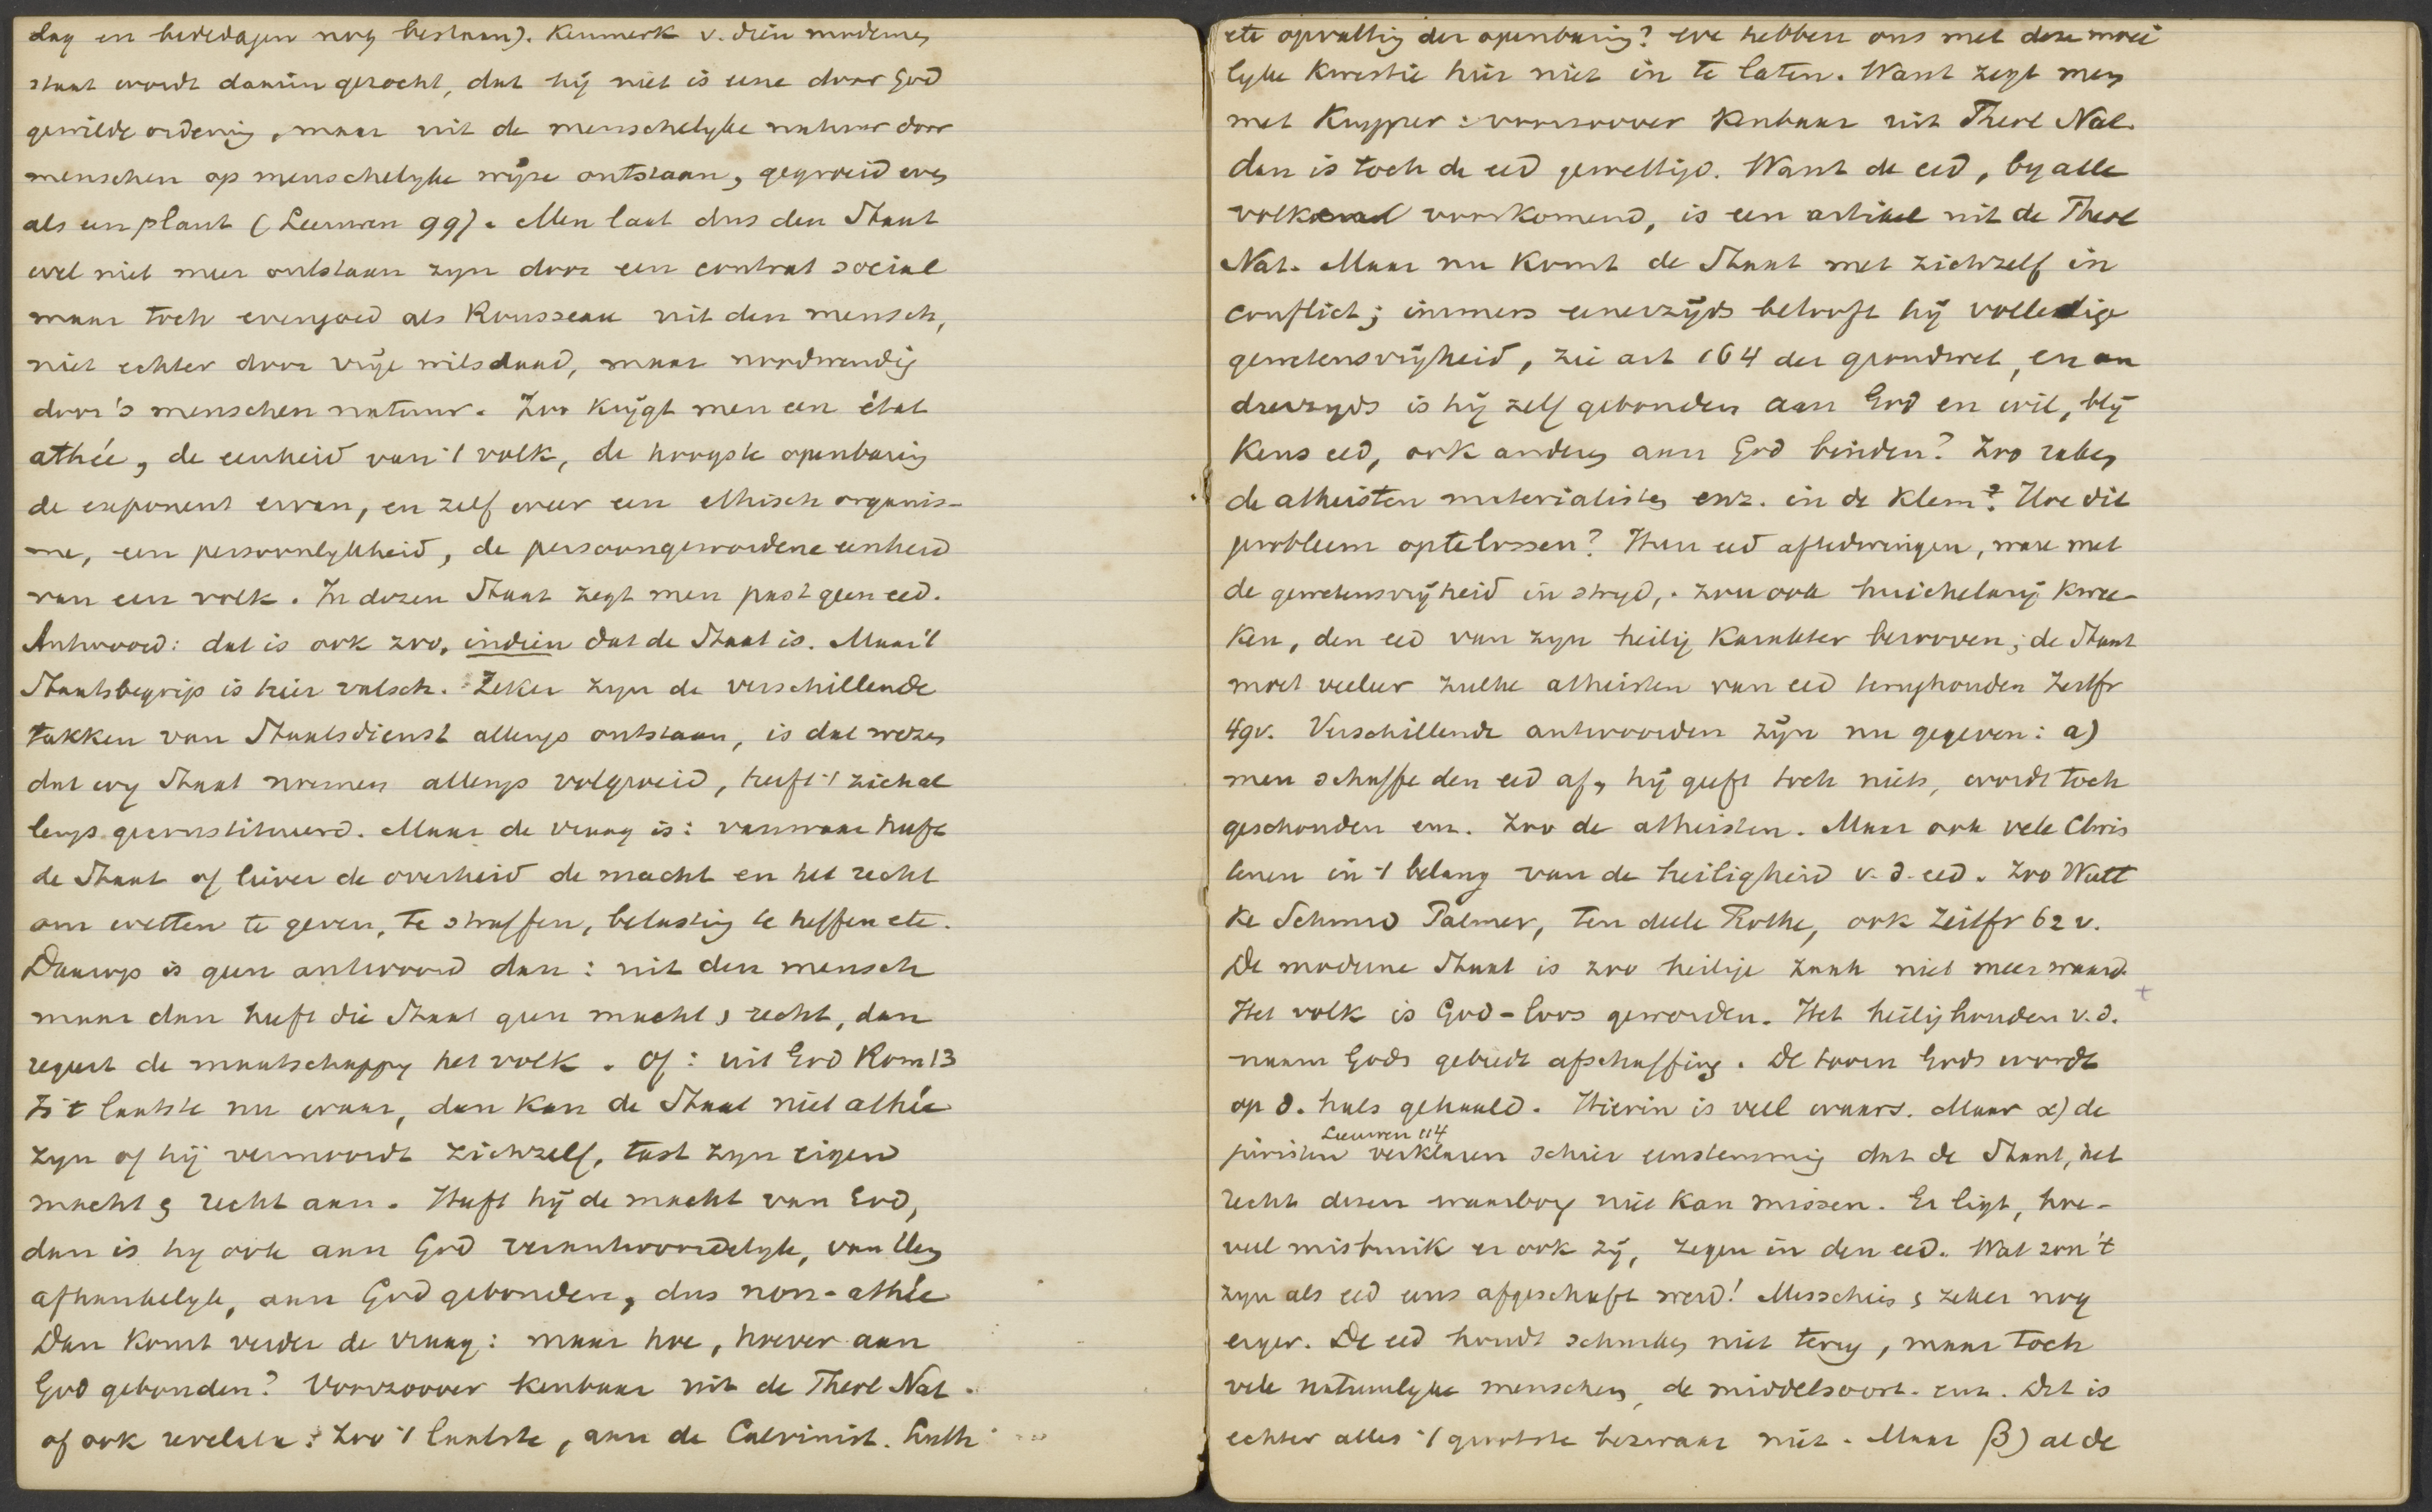 dag en bededagen nog bestaan). Kenmerk v. dien modernen
staat wordt daarin gezocht, dat hij niet is eene door God
gewilde ordening, maar uit de menschelyke natuur door
menschen op menschelyke wijze ontstaan, gegroeid even
als een plant (Leeuwen 99). Men laat dus den Staat
wel niet meer ontstaan zyn door een contrat social
maar toch evengoed als Rousseau uit den mensch,
niet echter door vrije wilsdaad, maar noodwendig
door 's menschen natuur. Zoo krijgt men een état
athée, de eenheid van 't volk, de hoogste openbaring
de exponent ervan, en zelf weer een ethisch organis-
me, een persoonlykheid, de persoongewordene eenheid
van een volk. In dezen Staat zegt men past geen eed.
Antwoord: dat is ook zoo, indien dat de Staat is. Maar 't
Staatsbegrip is hier valsch. Zeker zyn de verschillende
takken van Staatsdienst allengs ontstaan, is dat wezen
dat wy Staat noemen allengs volgroeid, heeft 't zich al
lengs geconstitueerd. Maar de vraag is: vanwaar heeft
de Staat of liever de overheid de macht en het recht
om wetten te geven, te straffen, belasting te heffen etc.
Daarop is geen antwoord dan: uit den mensch
maar dan heeft die Staat geen macht & recht, dan
regeert de maatschappy het volk. Of: uit God Rom 13
Is 't laatste nu waar, dan kan de Staat niet athée
zyn of hij vermoordt zichzelf, tast zyn eigen
macht & recht aan. Heeft hij de macht van God,
dan is hy ook aan God verantwoordelyk, van Hem
afhankelyk, aan God gebonden, dus non-athée
Dan komt verder de vraag: maar hoe, hoever aan
God gebonden? Voorzoover kenbaar uit de Theol Nat.
of ook revelata? Zoo 't laatste, aan de Calvinist. Luth
etc opvatting der openbaring? We hebben ons met deze moei
lyke kwestie hier niet in te laten. Want zegt men
met Kuyper: voorzoover kenbaar uit Theol Nat.
dan is toch de eed gewettigd. Want de eed, by alle
volken voorkomend, is een artikel uit de Theol
Nat. Maar nu komt de Staat met zichzelf in
conflict; immers eenerzijds belooft hij volledige
gewetensvrijheid, zie art 164 der grondwet, en an
drerzyds is hij zelf gebonden aan God en wil, blij
kens eed, ook anderen aan God binden? Zoo raken
de atheisten materialisten enz. in de klem? Hoe dit
probleem optelossen? Hun eed aftedwingen, ware met
de gewetensvrijheid in stryd, zou ook huichelarij kwee-
ken, den eed van zyn heilig karakter berooven; de Staat
moet veeleer zulke atheisten van eed terughouden Zeitfr
49v. Verschillende antwoorden zijn nu gegeven: a)
men schaffe den eed af, hij geeft toch niets, wordt toch
geschonden enz. Zoo de atheisten. Maar ook vele Chris
tenen in 't belang van de heiligheid v. d. eed. Zoo Wutt
ke Schmid Palmer, ten deele Rothe, ook Zeitfr 62 v.
De moderne Staat is zoo heilige zaak niet meer waard.
Het volk is God-loos geworden. Het heilig houden v. d.
naam Gods gebiedt afschaffing. De toorn Gods wordt
op d. hals gehaald. Hierin is veel waars. Maar α) de
Leeuwen 114
juristen verklaren schier eenstemmig dat de Staat, het
recht dezen waarborg niet kan missen. Er ligt, hoe-
veel misbruik er ook zij, zegen in den eed. Wat zou 't
zyn als eed eens afgeschaft werd! Misschien & zeker nog
erger. De eed houdt schurken niet terug, maar toch
vele natuurlyke menschen, de middelsoort enz. Dit is
echter alles 't grootste bezwaar niet. Maar β) al de